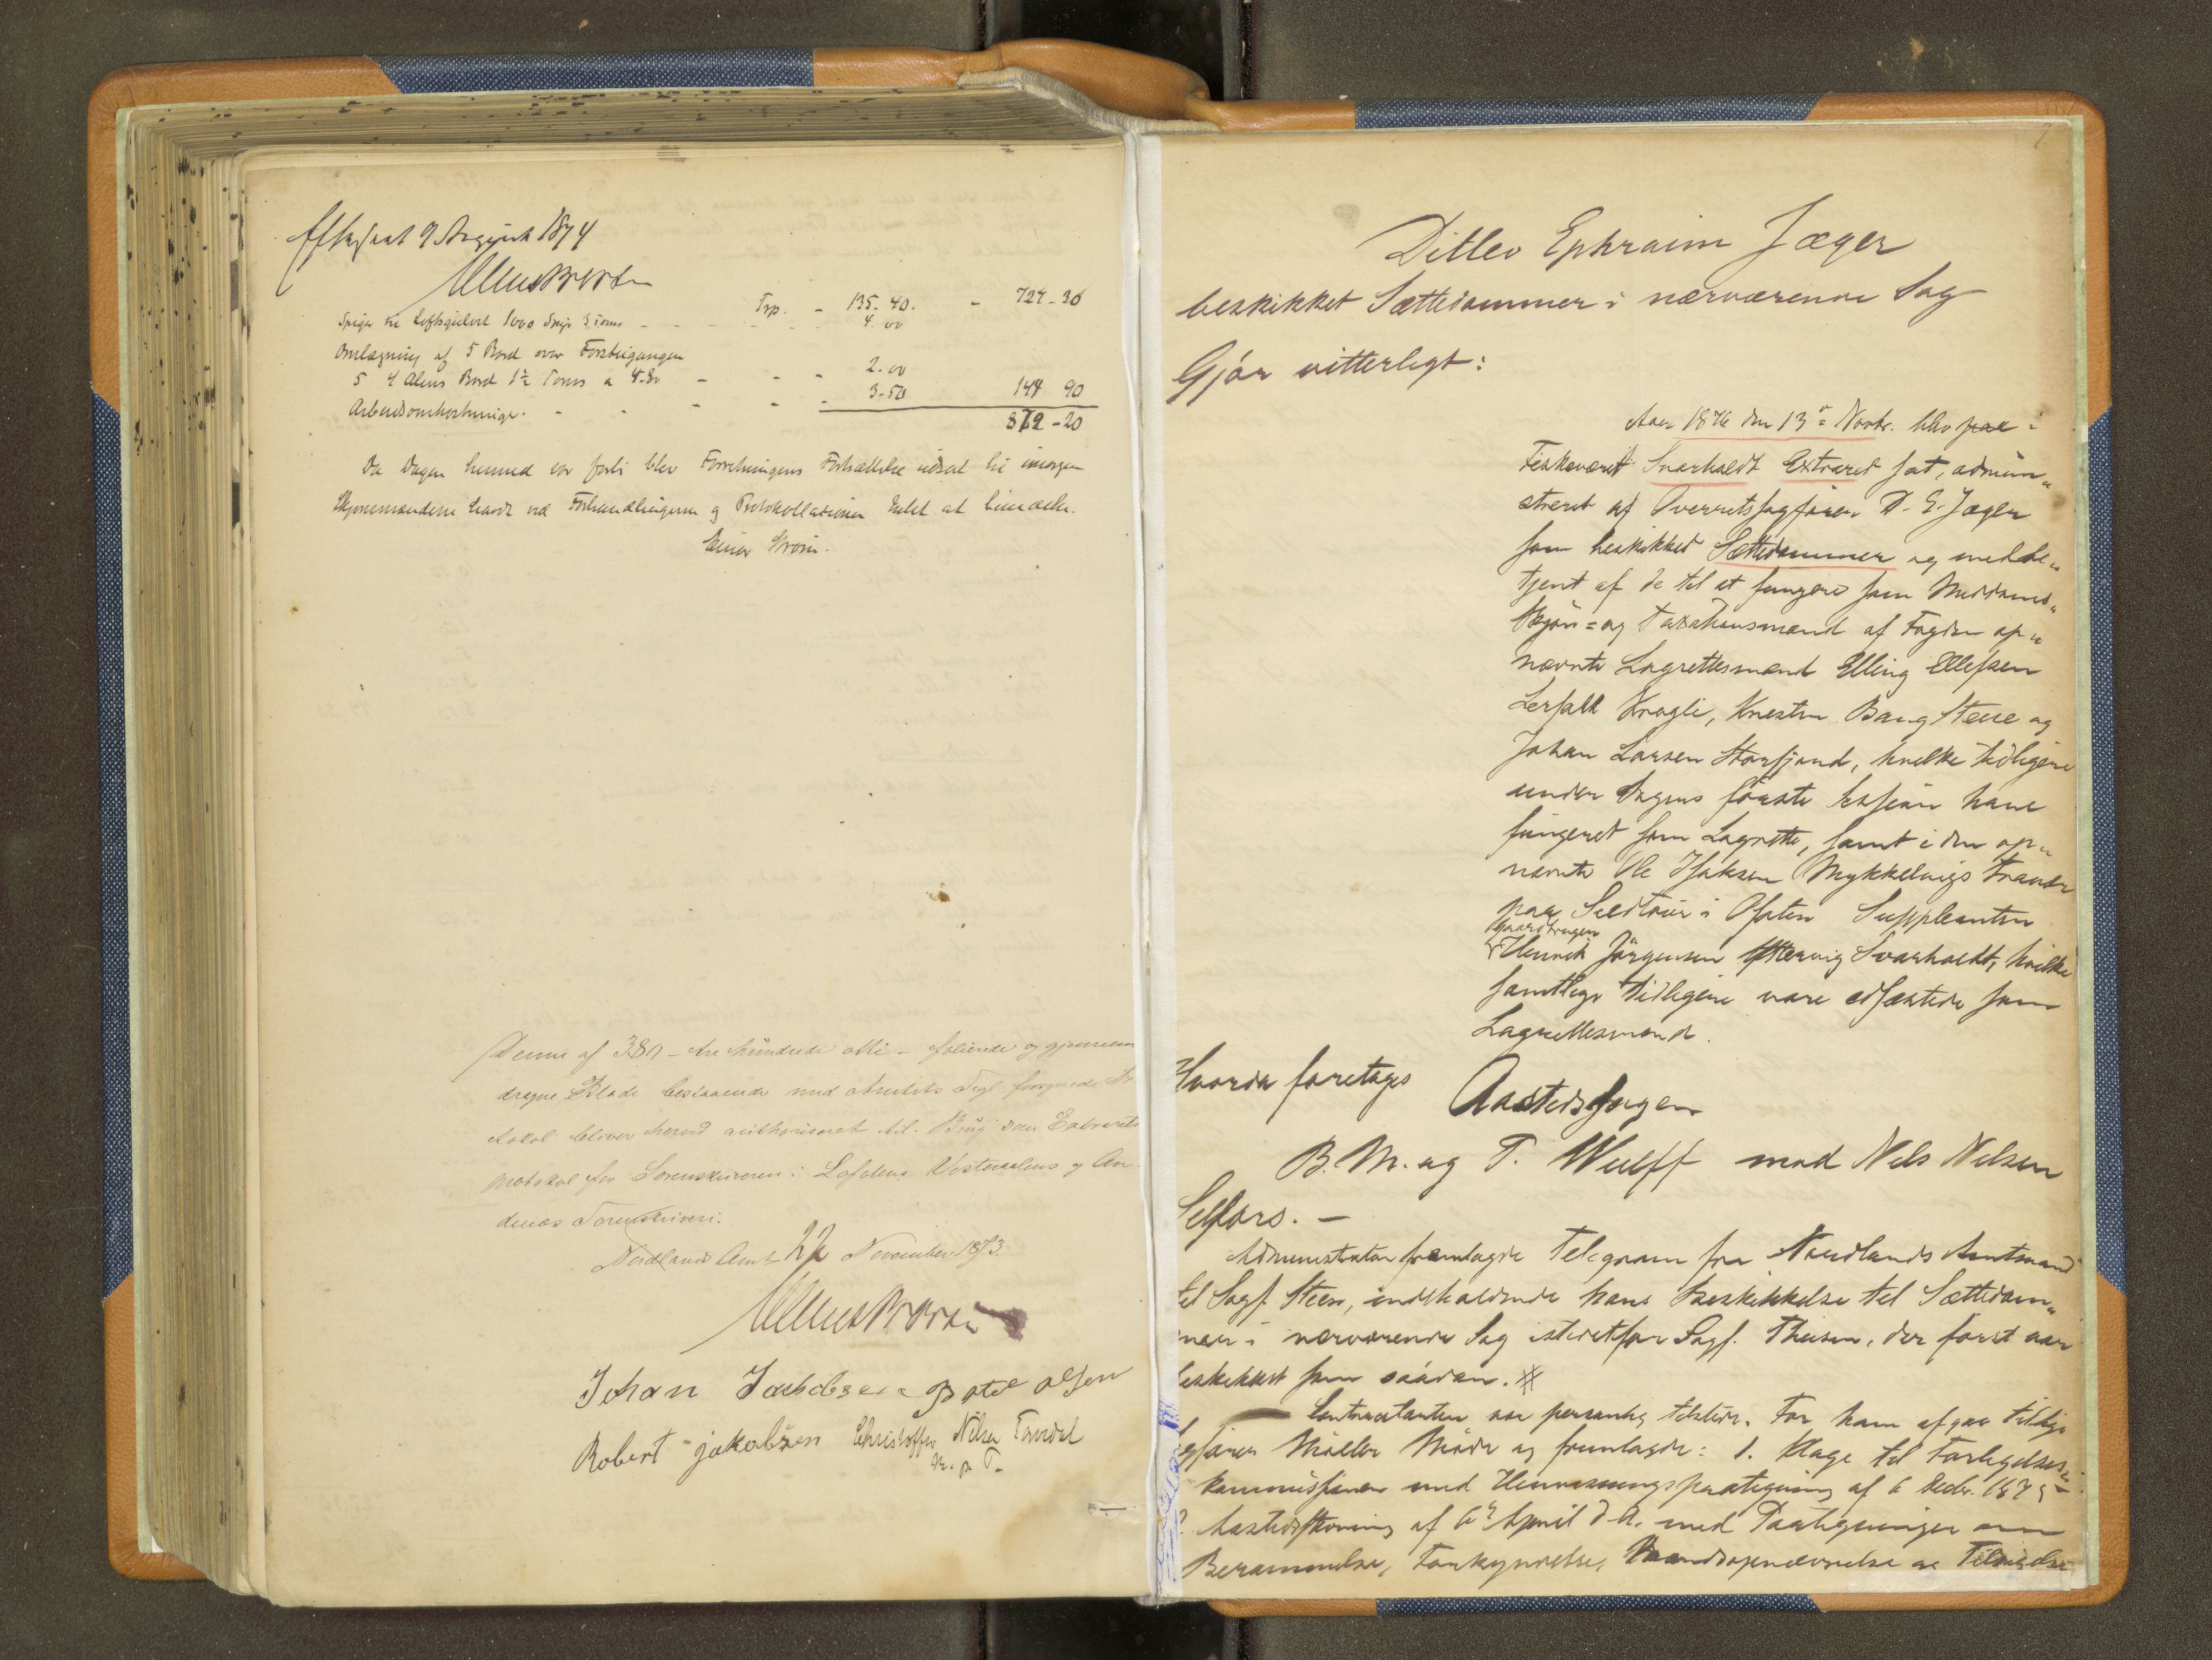 Efterseet 9 August 1874
Trp. - 135. 40. - 724-30
Spiger til Loftsgulvet 1000 Spiger 3 Toms - - - - 4. 00
Omlægning af 5 Bord over Forstuegangen
5 4 Alens Bord 1½ Toms a 4.80 - - - 2.00
Arbeidsomkostninger. - - - - - 3-50 144 90
872-20
Da Dagen hermed var forbi blev Forretningens Fortsættelse udsat til imorgen
Skjønsmændene havde ved Forhandlingerne og Protokollationen Intet at bemærke.
Einar Strøm.
Denne af 380 - tre hundrede otti - folierede og gjennem
dragne Blade bestaaende med Amtets Segl forsynede Pr
otokol bliver herved authoriseret til Brug som Extrarets
protokol for Sorenskriveren i Lofotens Vesteraalens og An
denæs Sorenskriveri.
Nordlands Amt 22 November 1873.
Johan Jachobsen Botel olsen
Robert jakobsen Christoffer Nilsen Tandal
m. p. P.
Ditlev Ephraim Jæger
beskikket Sættedommer i nærværende Sag
Gjør vitterligt:
Aar 1876 den 13de Novbr. blev paa i
Fiskeværet Svarholdt Extraret sat, admini„
streret af Overretssagfører D. E. Jæger
som beskikket Sættedommer og medbe„
tjent af de til at fungere som Meddoms„
Skjøn= og Taxationsmænd af Fogden op„
nævnte Lagrettesmænd Elling Ellefsen
Lerfald Kragli, Bang Steen og
Johan Larsen Storfjord, hvilke tidligere
under Sagens første Session have
fungeret som Lagrette, samt i den op„
nævnte Ole Isaksen Mykkelvigs Fravær
paa Sildtour i Ofoten Suppleanten
Gaardbruger
Henrik Jørgensen Svarholdt, hvilke
samtlige tidligere vare edfæstede som
Lagrettesmænd.
Hvorda foretages Aastedssagen
B. M. og T. Wulff mod Nils Nilsen
Selfors. -
Administrator fremlagde Telegram fra Nordlands Amtmand
til Sagf. Steen, indeholdende hans Beskikkelse til Sættedom„
mer i nærværende Sag istedetfor Sagf. Theisen, der først var
beskikket som saadan. #
Contracitanten var personlig tilstede. For ham afgav tillige
Sagfører Møller Møde og fremlagde: 1. Klage til Forligelses„
kommissionen med Henvisningspaategning af 6 Decbr. 1875
2. Aastedsstevning af 6te April d. A. med Paategninger om
Berammelse, Forkyndelse, Mandsopnævnelse og Tilsigelse